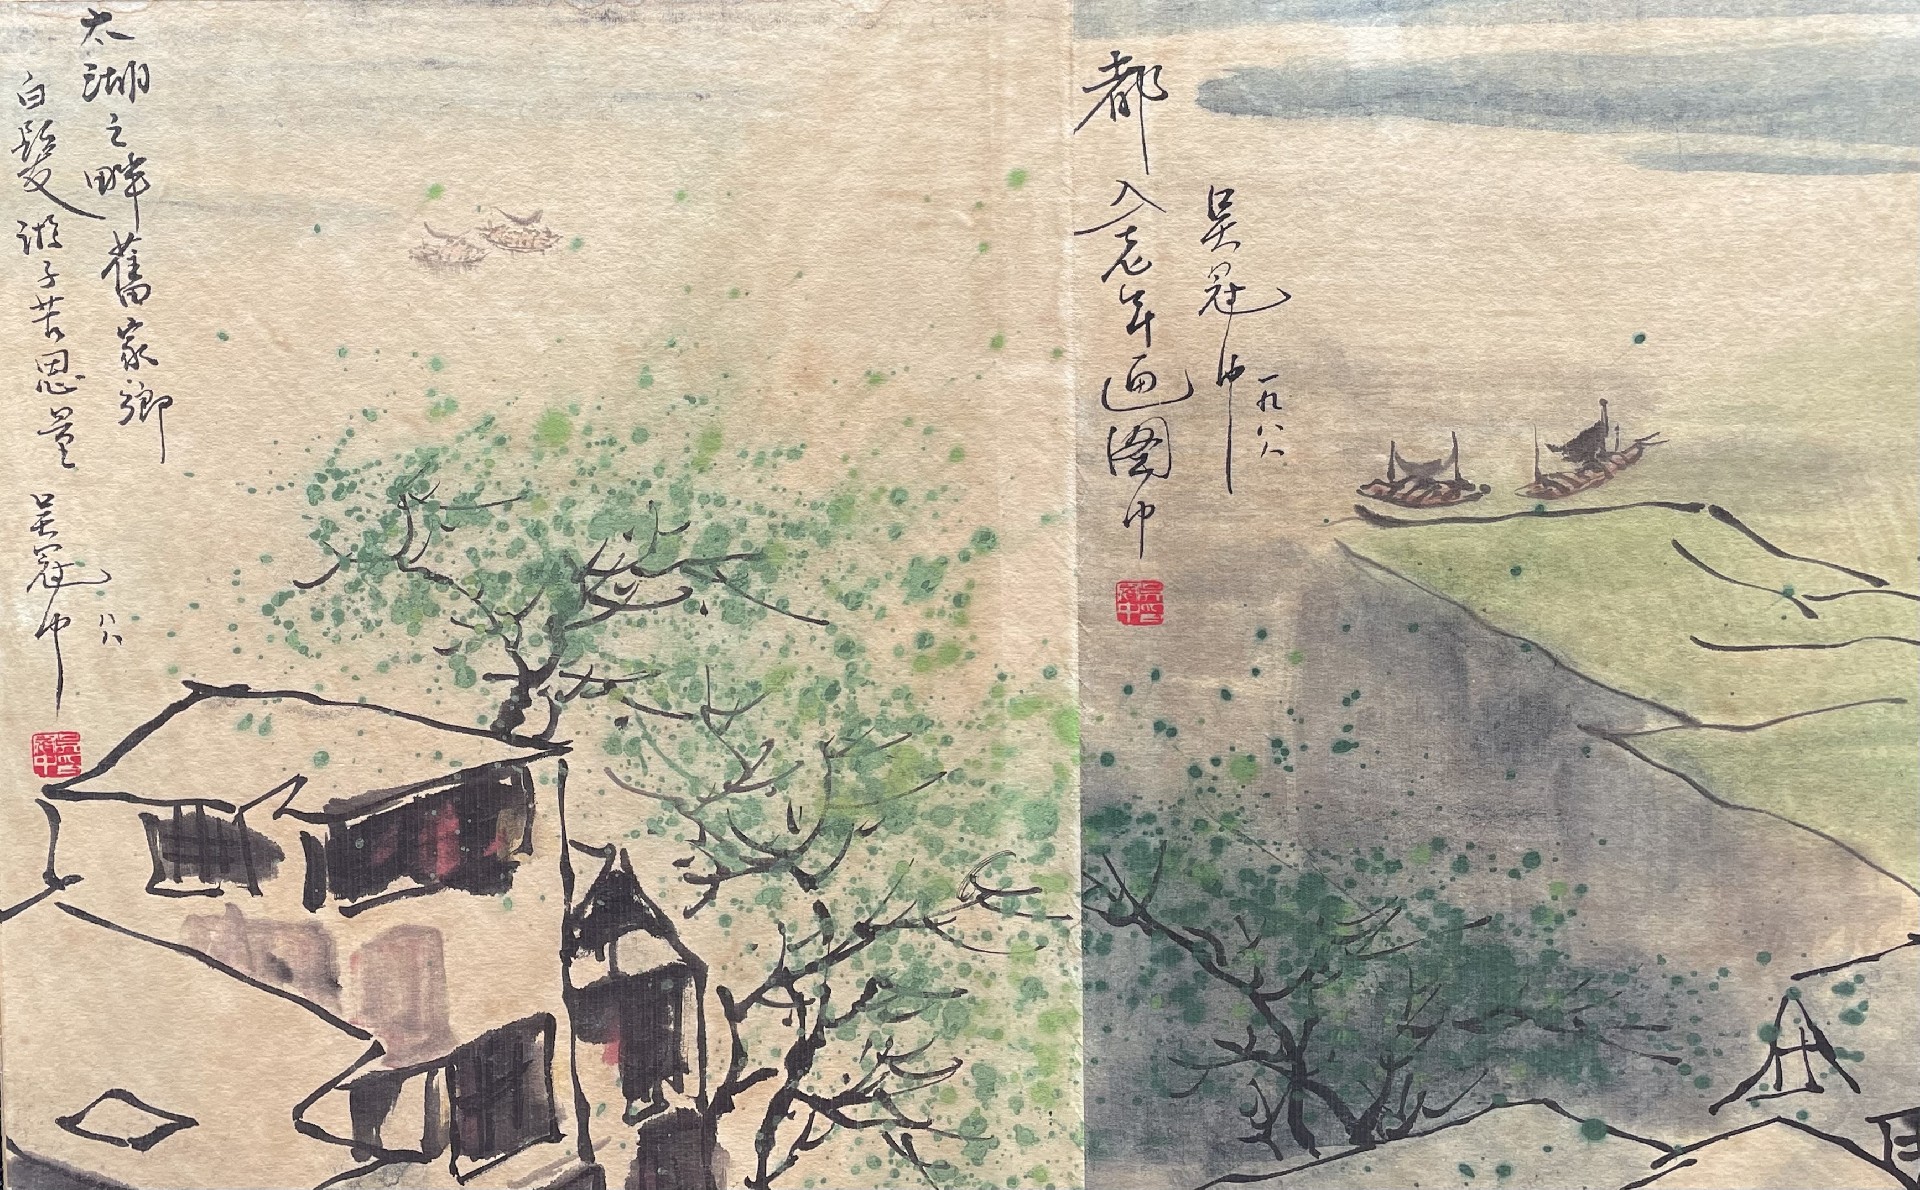 都入老年画图中
吴冠中
一九八八
太湖之畔舊家鄉
白髮游子苦思量
吴冠中
八八
吴冠中印
吴冠中印